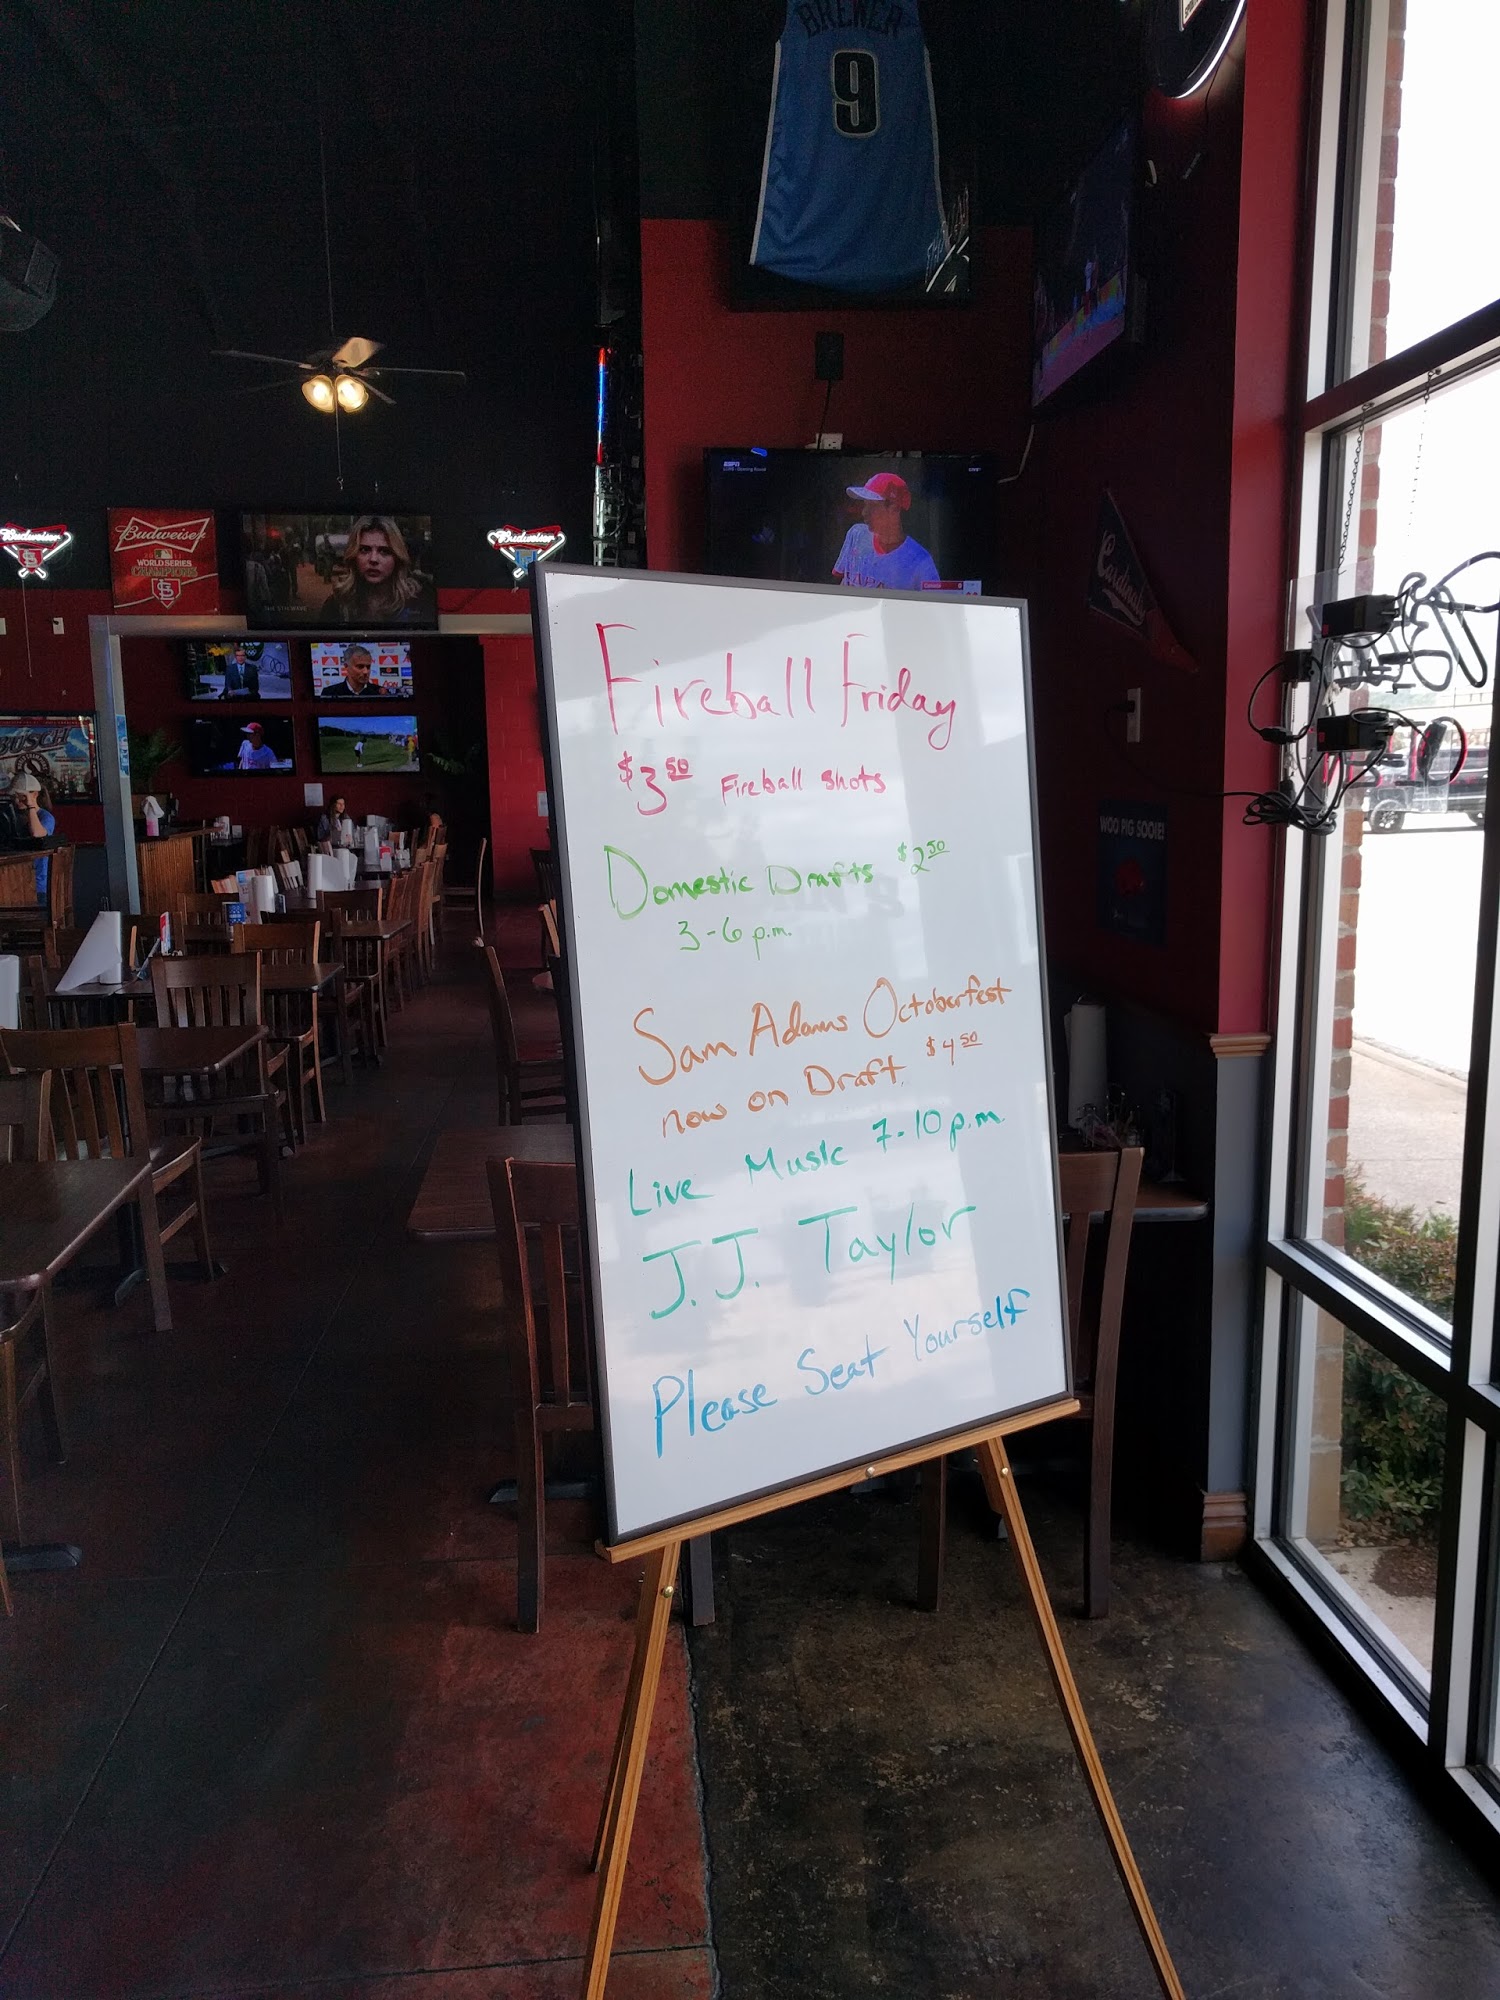 BREWER
9
ESPN
Budweiser
Budweiser
WORLD SERIES
CHAMPIONS
Budweiser
Cardinals
AON
BUSCH
WOO PIG SOOIE!
Fireball Friday
$3.50 Fireball Shots
Domestic Drafts $2.50
3-6 p.m.
Sam Adams Octoberfest
now on Draft. $4.50
Live Music 7-10 p.m.
J.J. Taylor
Please Seat Yourself